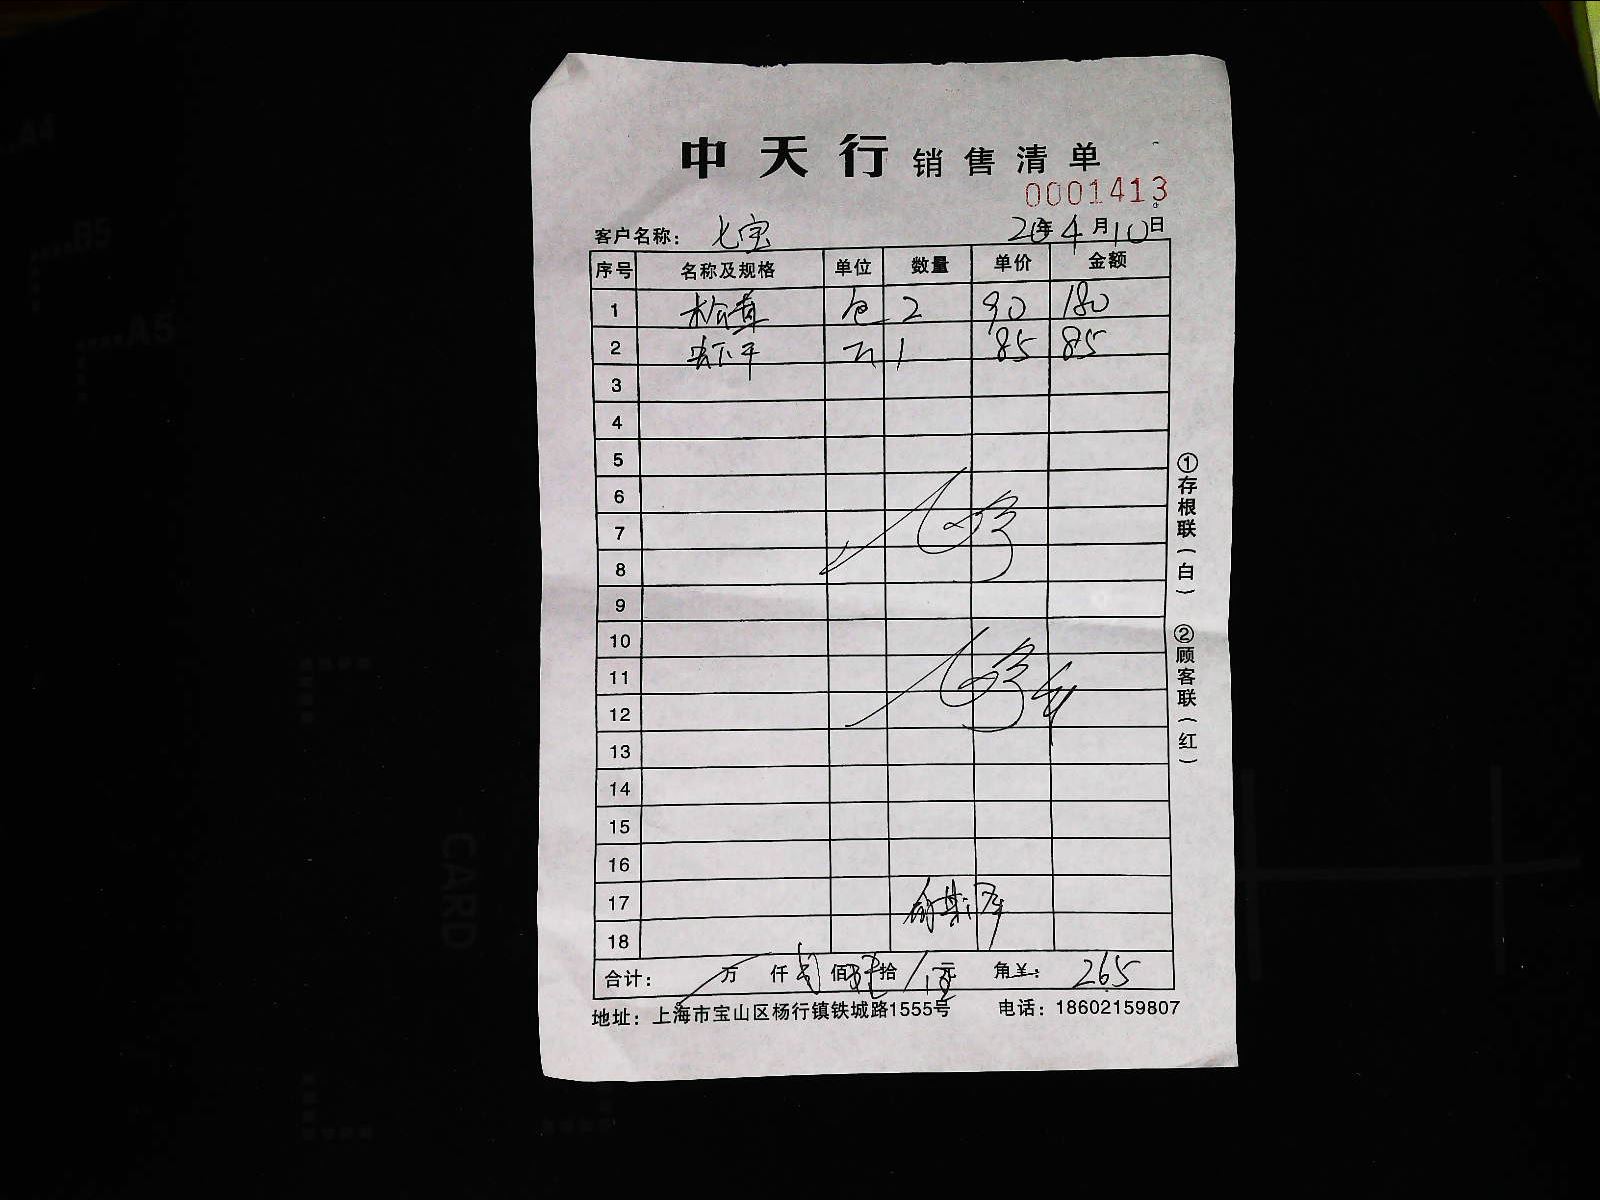 中天行 销售清单
0001413
客户名称: 七宝 20年4月10日
序号 名称及规格 单位 数量 单价 金额
1 松茸 包 2 90 180
2 1 85 85
3
4
5
6
7
8
9
10
11
12
13
14
15
16
17
18
合计: 万 仟 佰 拾 元 角 ¥: 265
地址: 上海市宝山区杨行镇铁城路1555号 电话: 18602159807
①存根联(白) ②顾客联(红)
A4
B5
A5
CARD